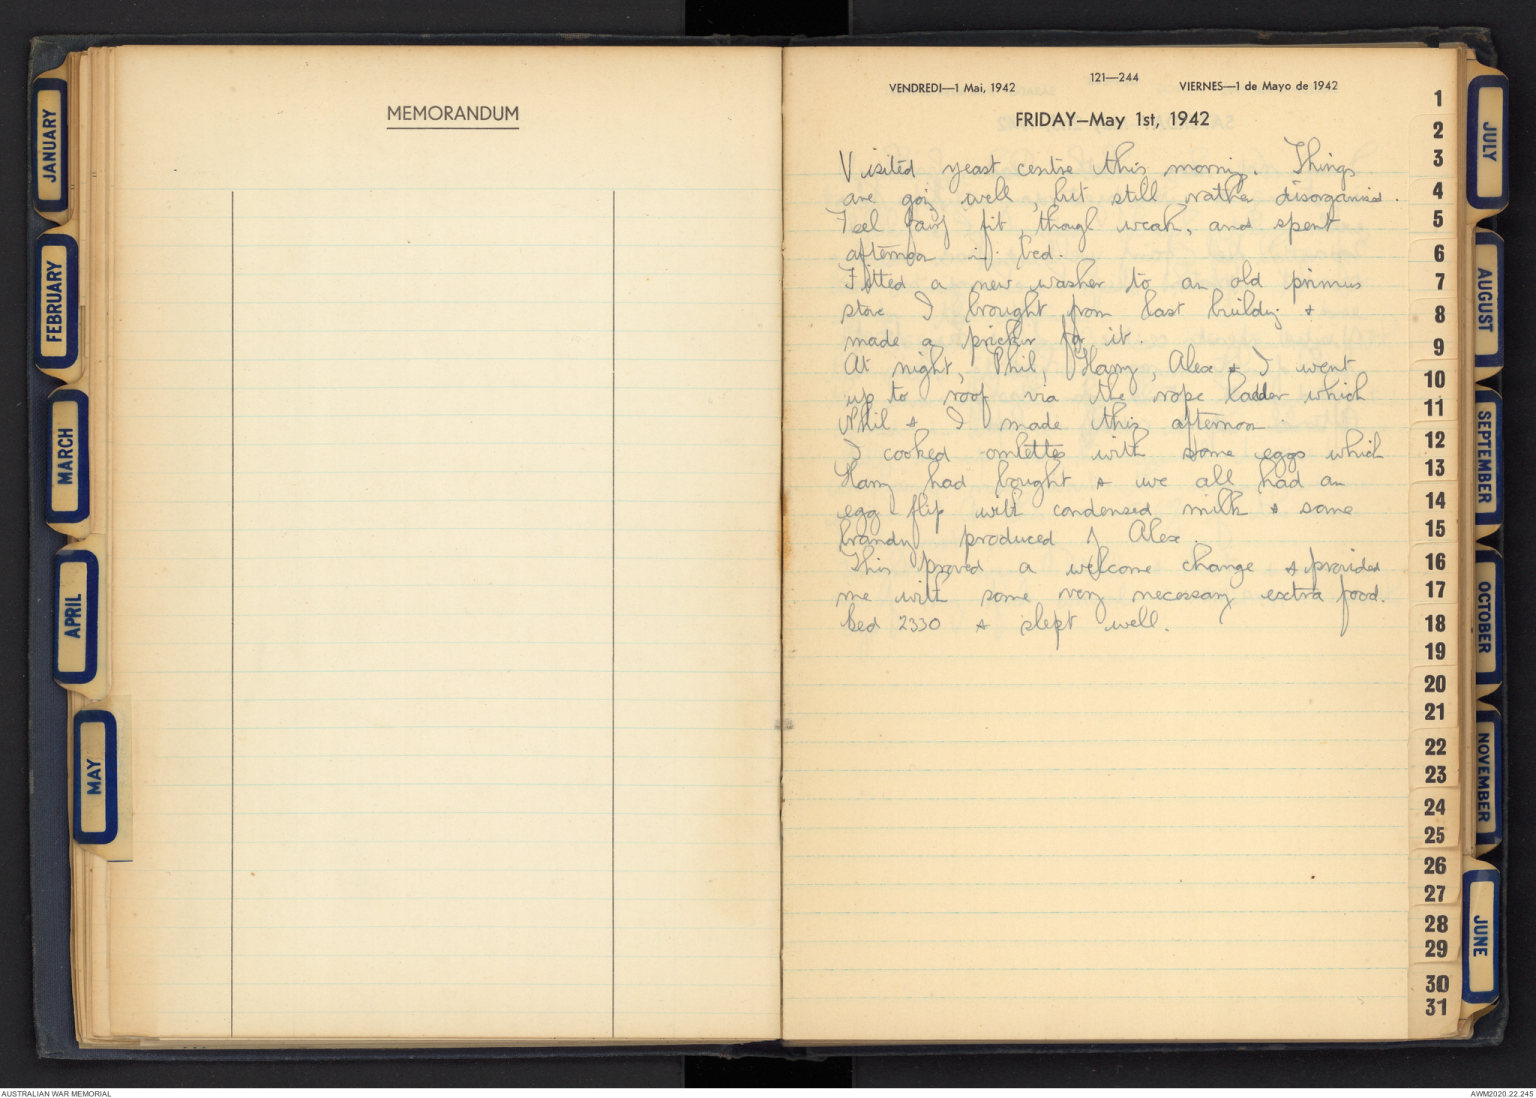 MEMORANDUM
JANUARY
FEBRUARY
MARCH
APRIL
MAY
121—244
VENDREDI—1 Mai, 1942
VIERNES—1 de Mayo de 1942
FRIDAY—May 1st, 1942
Visited yeast centre this morning. Things
are going well, but still rather disorganised.
Feel fairly fit, though weak, and spent
afternoon in bed.
Fitted a new washer to an old primus
stove I brought from last building &
made a pricker for it.
At night, Phil, Harry, Alex & I went
up to roof via the rope ladder which
Phil & I made this afternoon.
I cooked omlettes with some eggs which
Harry had bought & we all had an
egg flip with condensed milk & some
brandy produced by Alex.
This proved a welcome change & provided
me with some very necessary extra food.
Bed 2330 & slept well.
1
2
3
4
5
6
7
8
9
10
11
12
13
14
15
16
17
18
19
20
21
22
23
24
25
26
27
28
29
30
31
JULY
AUGUST
SEPTEMBER
OCTOBER
NOVEMBER
JUNE
AUSTRALIAN WAR MEMORIAL
AWM2020.22.245